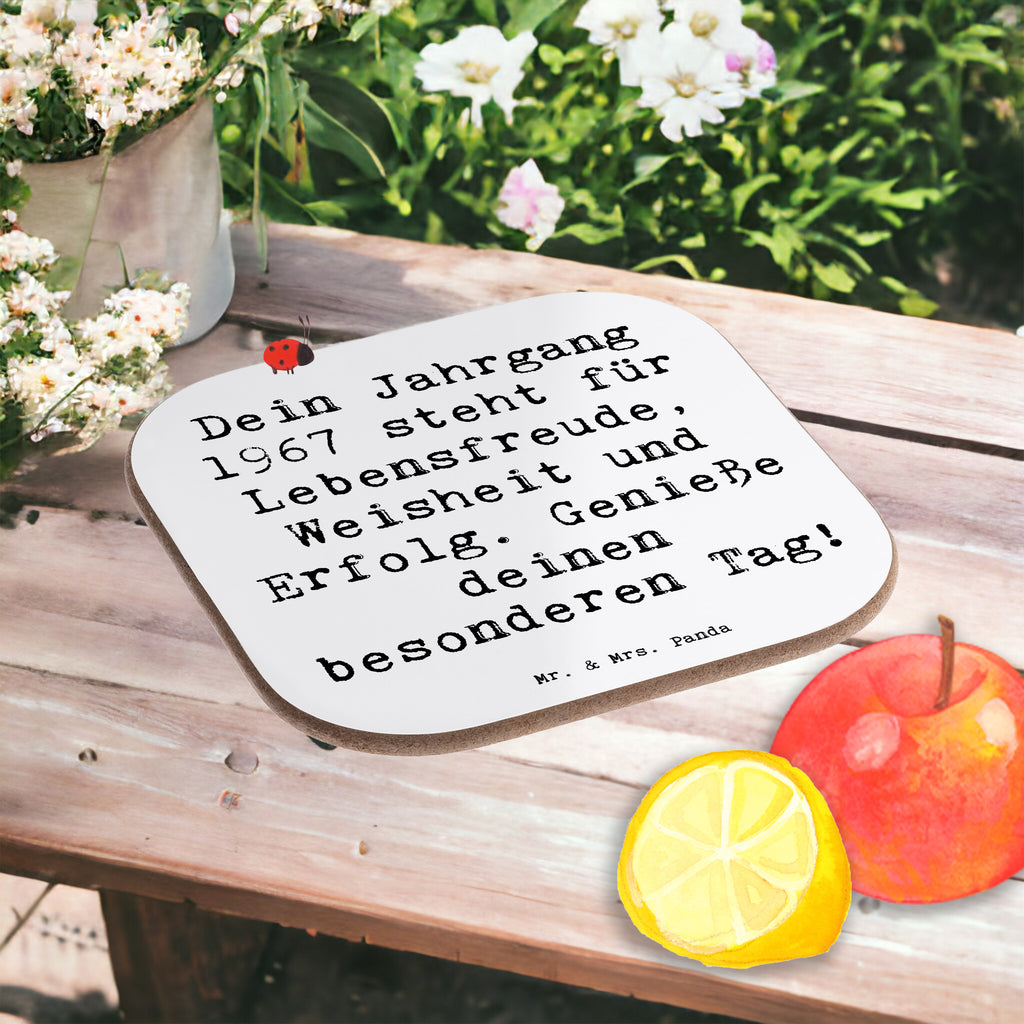 Dein Jahrgang
1967 steht für
Lebensfreude,
Weisheit und
Erfolg. Genieße
deinen
besonderen Tag!
Mr. & Mrs. Panda